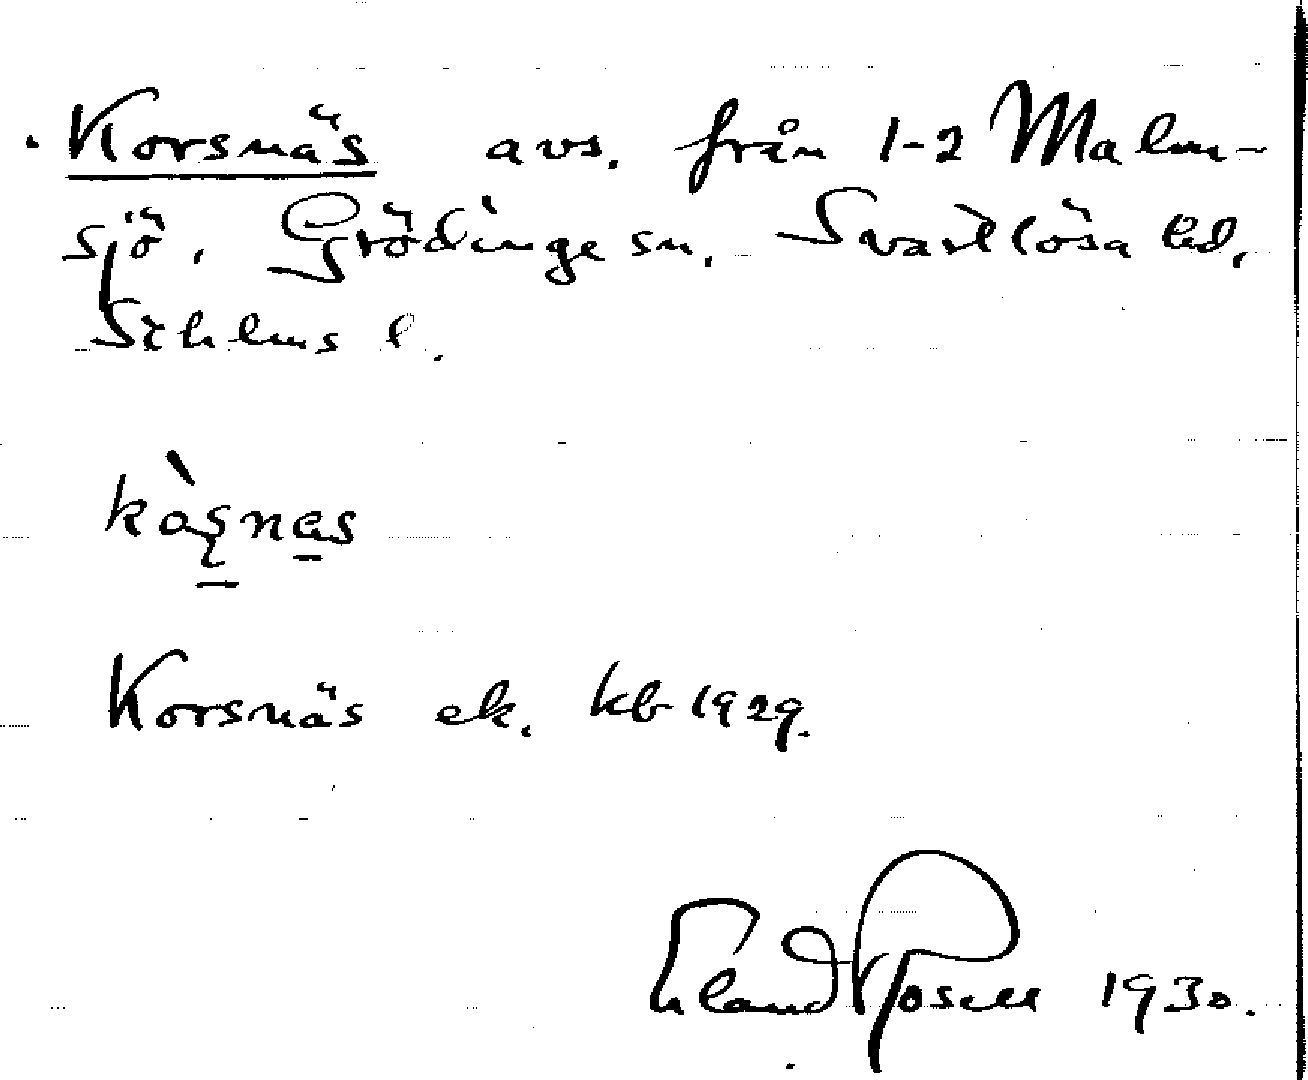 Korsnäs avs. från 1-2 Malm-
sjö, Grödinge sn. Svartlösa hd,
Sthlms l.
kàşnas
Korsnäs ek. kb 1929.
Erland Rosell 1930.